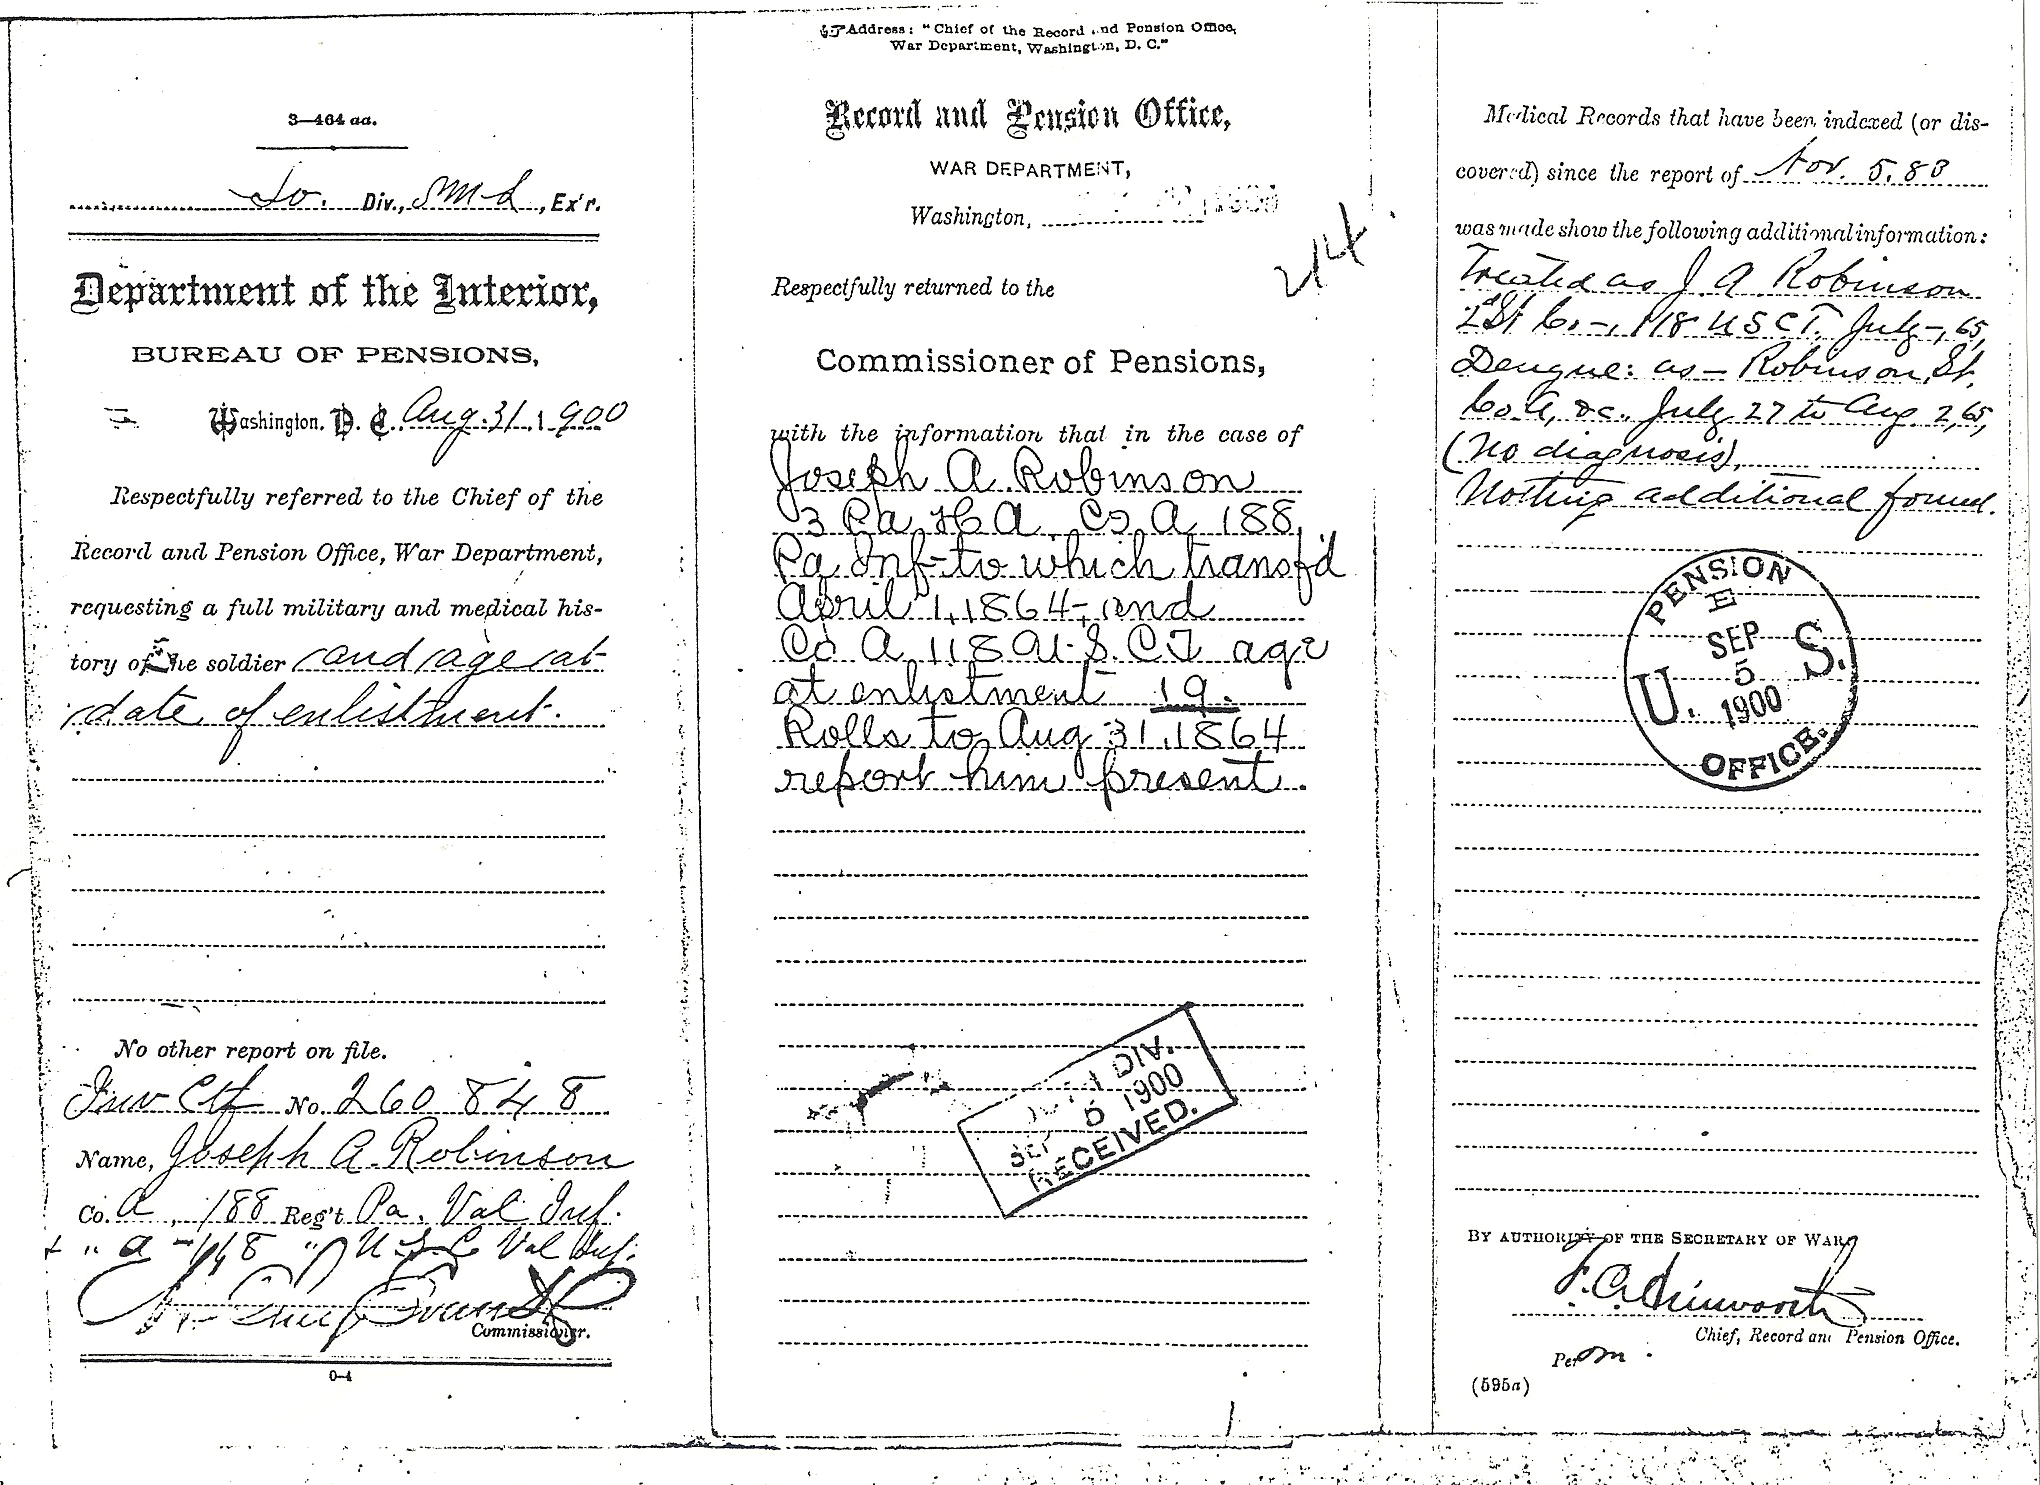 3—464 aa.
So. Div., SML, Ex'r.
Department of the Interior,
BUREAU OF PENSIONS,
Washington, D. C. Aug. 31, 1900
Respectfully referred to the Chief of the
Record and Pension Office, War Department,
requesting a full military and medical his-
tory of the soldier and age at
date of enlistment.
No other report on file.
Inv Ctf No. 260848
Name, Joseph A. Robinson
Co. A, 188 Reg't Pa. Vol Inf.
+ " A - 118 " U.S.C Vol Inf.
Evans
Commissioner.
0-4
Address: "Chief of the Record and Pension Office,
War Department, Washington, D. C."
Record and Pension Office,
WAR DEPARTMENT,
Washington,
Respectfully returned to the
Commissioner of Pensions,
with the information that in the case of
Joseph A. Robinson
3 Pa H A, Co. A 188
Pa Inf- to which transf'd
April 1, 1864-, and
Co A 118 U.S.C.T. age
at enlistment 19.
Rolls to Aug 31, 1864
report him present.
DIV.
SEP 5 1900
RECEIVED.
Medical Records that have been indexed (or dis-
covered) since the report of Nov. 5. 80
was made show the following additional information:
Treated as J. A. Robinson
Co -, 118 U S C T. July -, 65,
Dengue: as - Robinson, St.
Co A, &c., July 27 to Aug 2, 65,
(No diagnosis).
Nothing additional found.
PENSION
E
SEP
5
1900
U. S.
OFFICE.
BY AUTHORITY OF THE SECRETARY OF WAR:
F. C. Ainsworth
Chief, Record and Pension Office.
Per m
(595a)